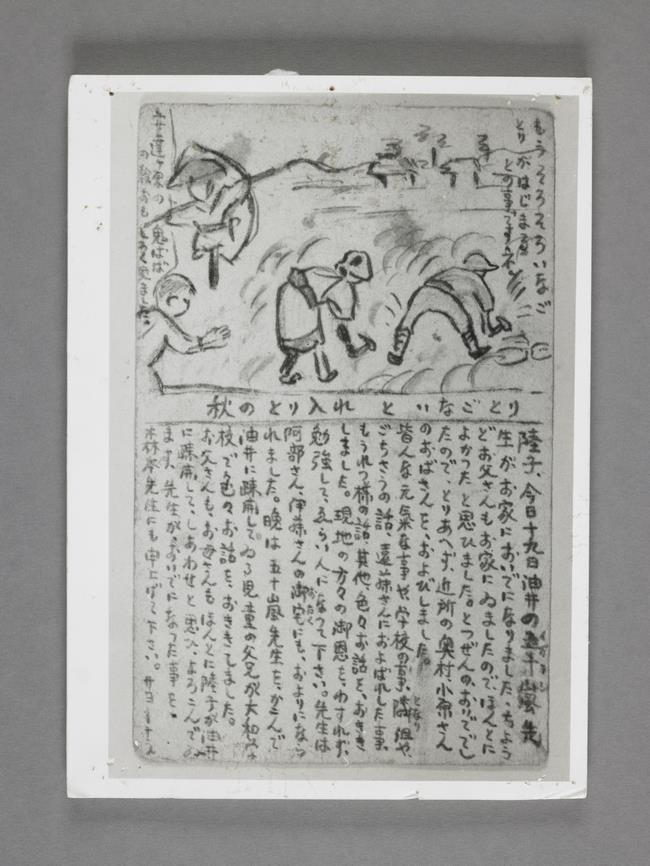 もうそろそろいなご
とりがはじまる
との事ですね
安達ヶ原の鬼ばば
のお話おもしろく見ました。
秋のとり入れといなごとり
陸子、今日十九日油井の五十嵐先
生がお家においでになりました、ちよう
どお父さんもお家にゐましたので、ほんとに
よかつたと思ひました。とつぜんのおいででし
たので、とりあへず、近所の奥村、小原さん
のおばさんを、およびしました。
皆んな元気な事や、学校の事、隣組や、
ごちそうの話、遠藤さんにおよばれした事、
もうれつ様の話、其他、色々お話を、おきき
しました。現地の方々の御恩を、わすれず、
勉強して、ゑらい人になつて下さい。先生は
阿部さん、伊藤さんの御宅にも、およりになら
れました。晩は五十嵐先生を、かこんで
油井に疎開してゐる児童の父兄が大和学
校で色々お話を、おききしました。
お父さんも、お母さんもほんとに陸子が油井
に疎開して、しあわせと思ひ、よろこんでゐ
ます、先生がおいでになつた事を。
森本先生にも申上げて下さい。